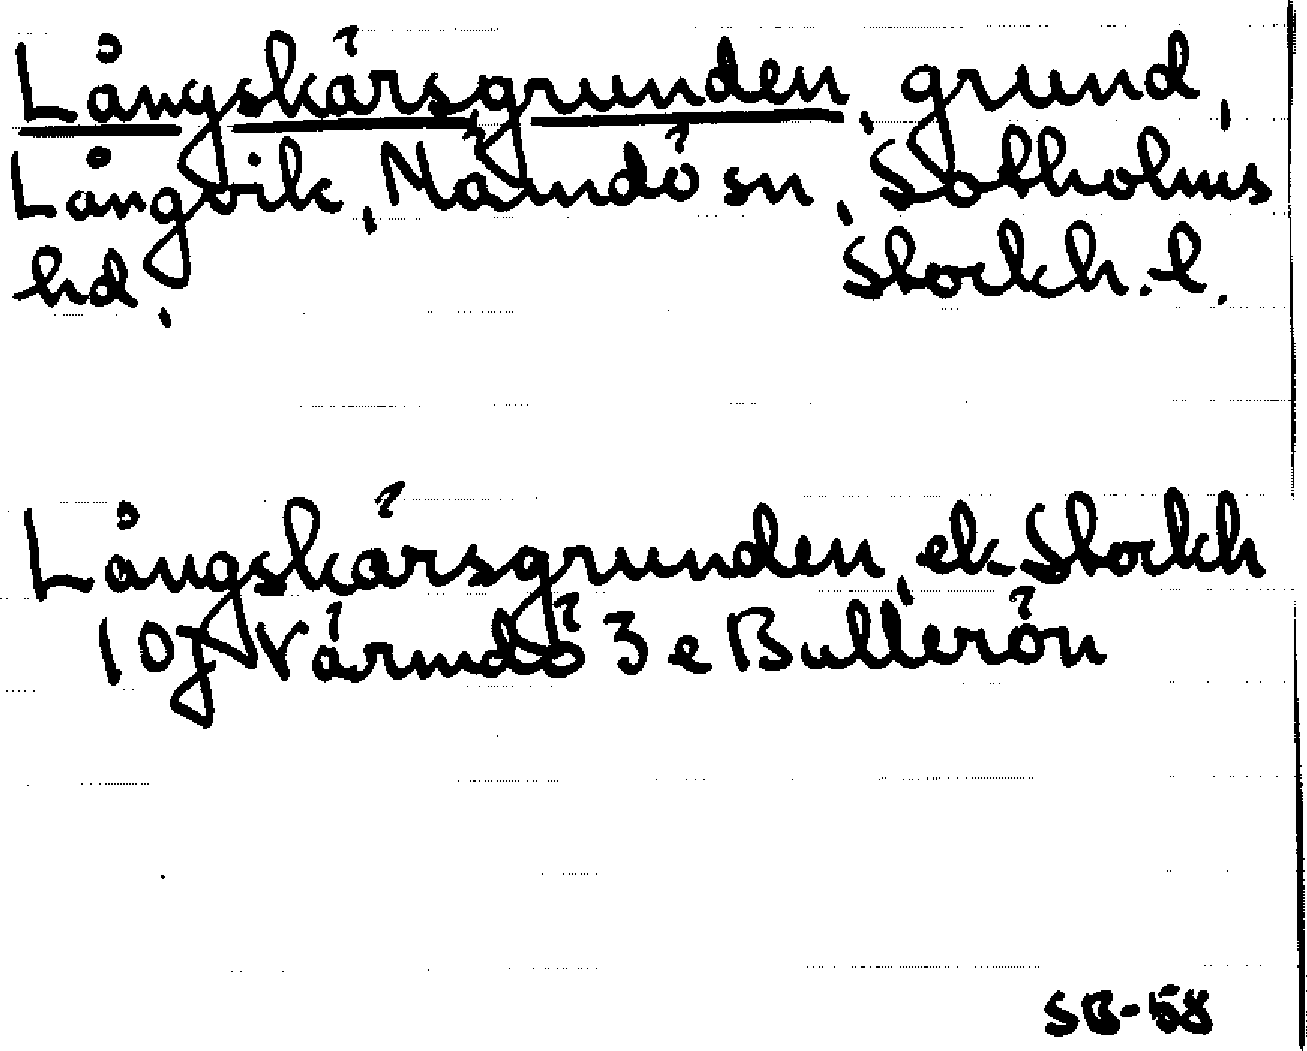 Långskärsgrunden, grund,
Långvik, Nämdö sn, Sotholms
hd, Stockh. l.
Långskärsgrunden, ek Stockh
10j Värmdö 3 e Bullerön
SB-58